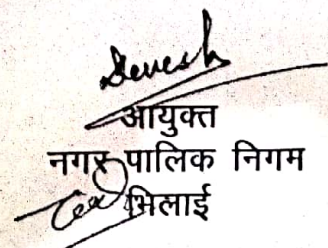 Devesh
आयुक्त
नगर पालिक निगम
भिलाई